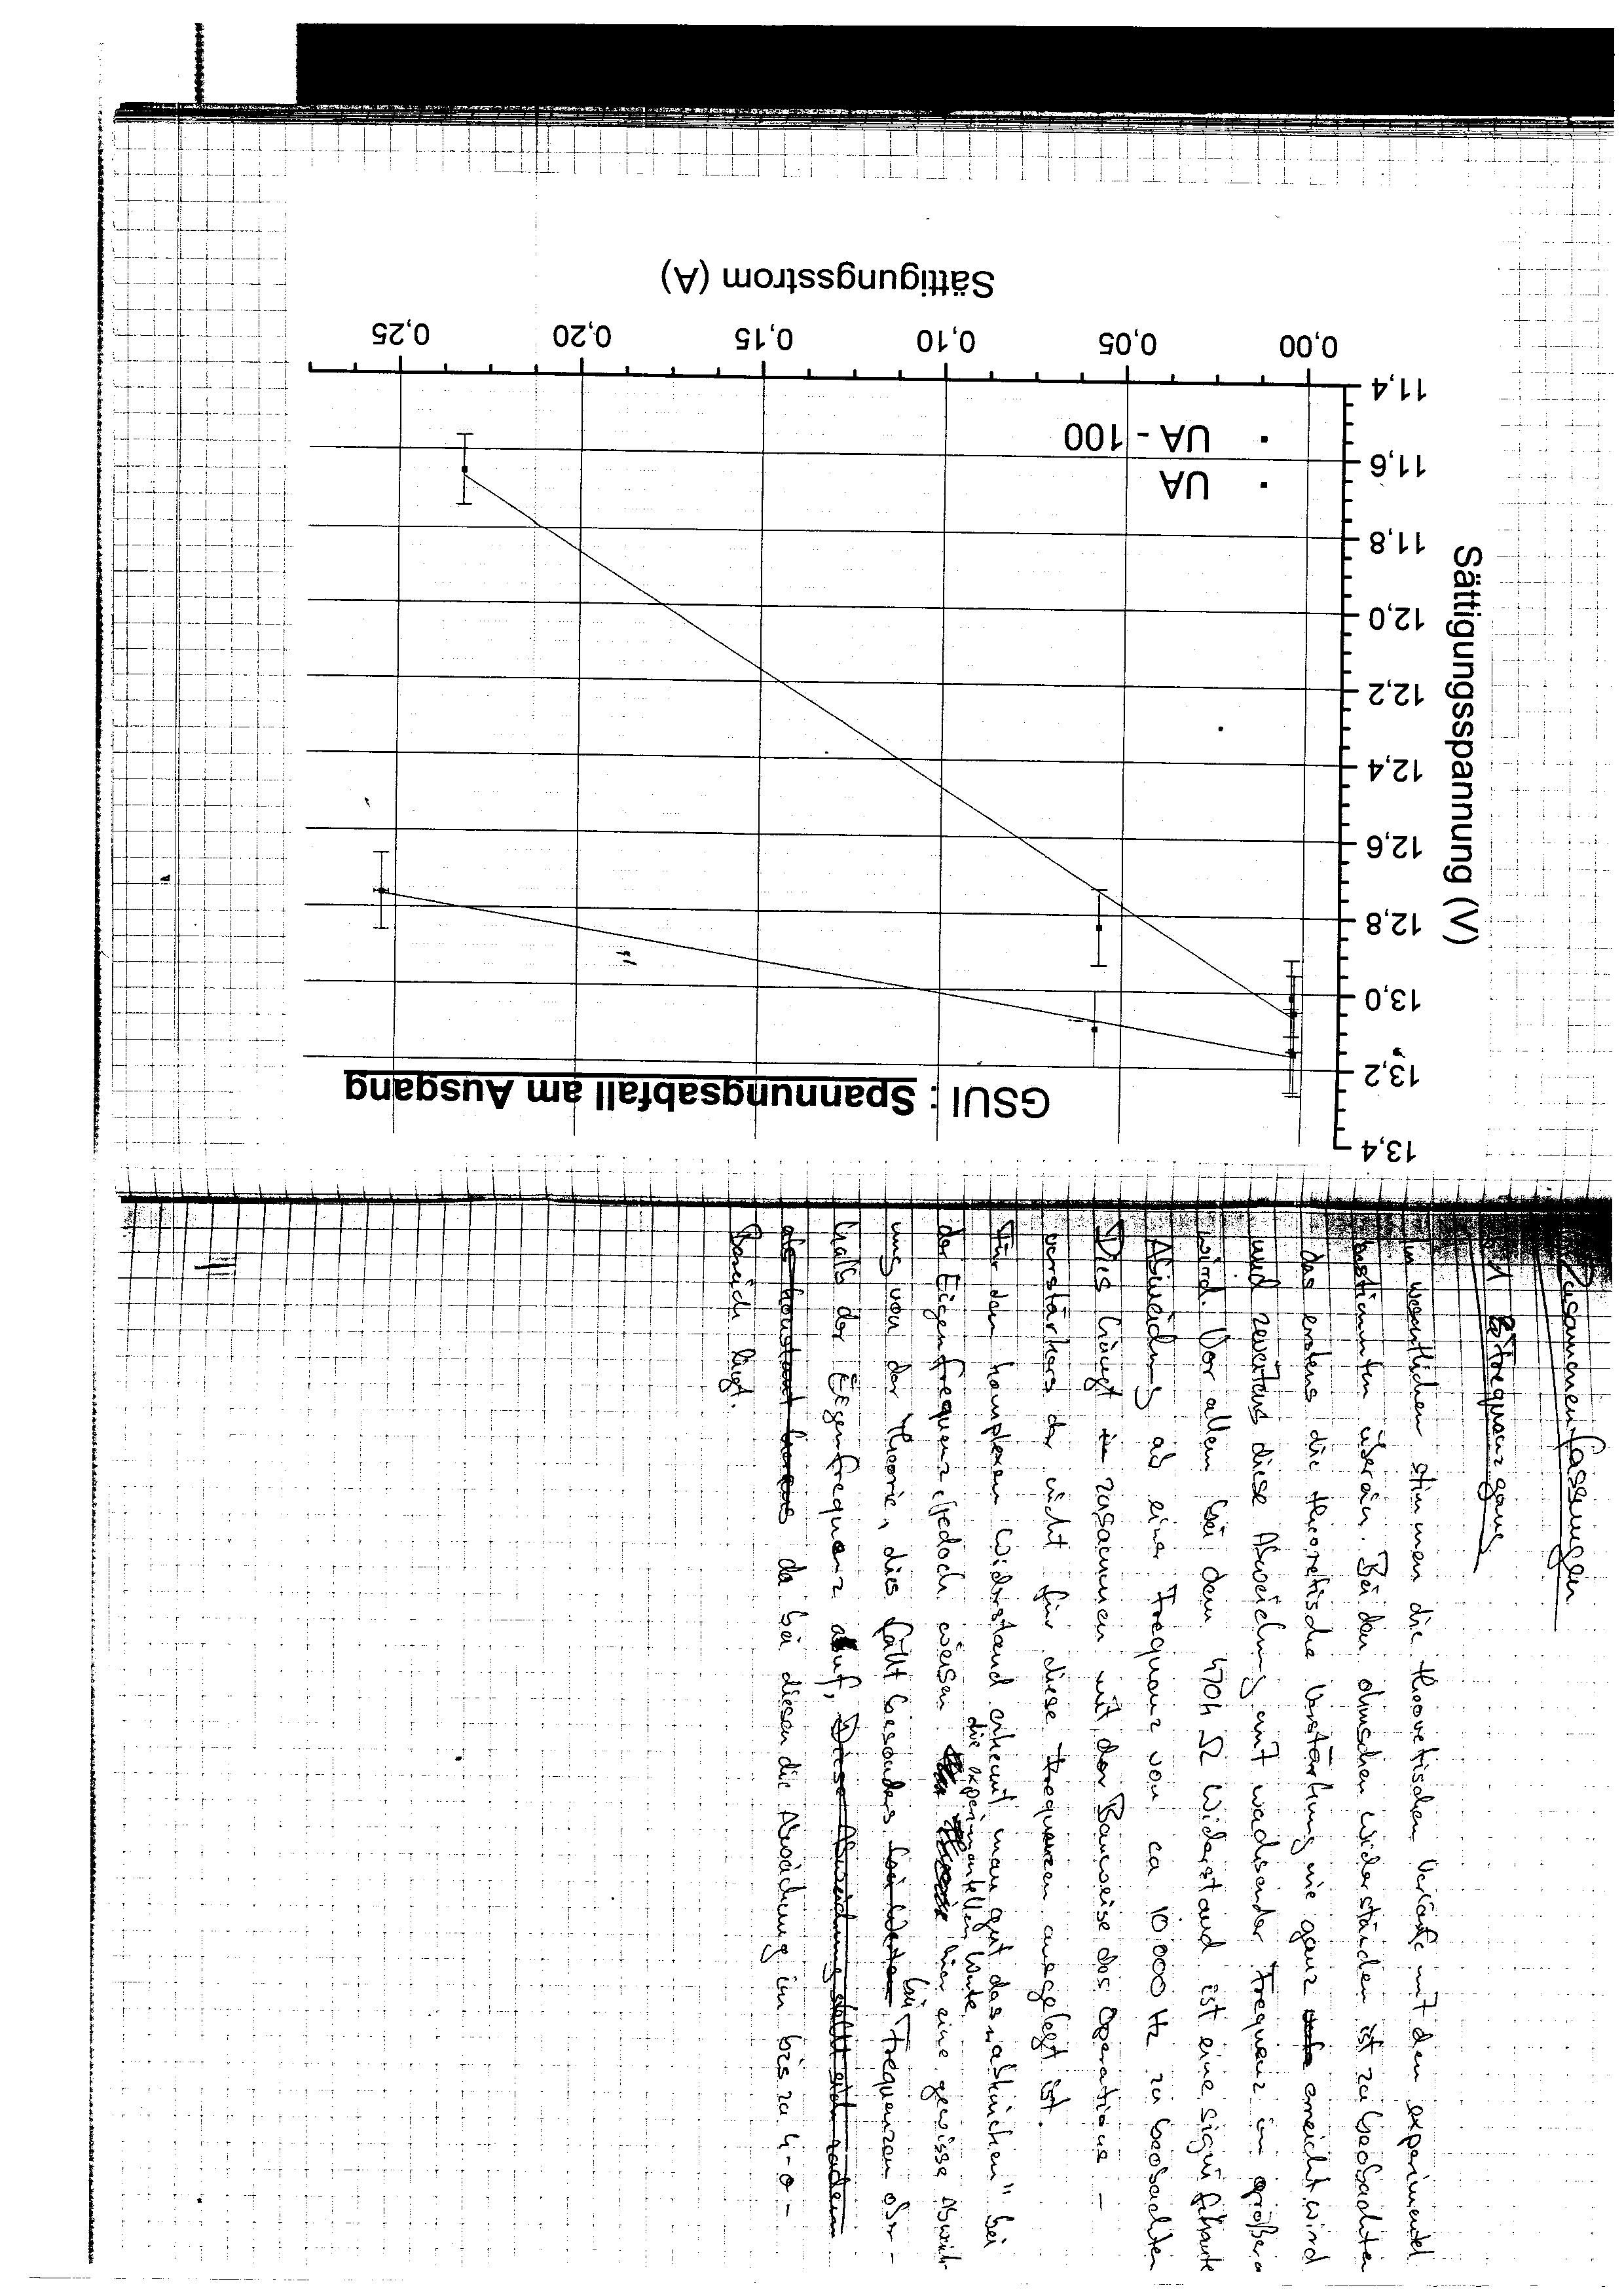 GSUI : Spannungsabfall am Ausgang
Sättigungsspannung (V)
13,4
13,2
13,0
12,8
12,6
12,4
12,2
12,0
11,8
11,6
11,4
UA
UA - 100
0,00
0,05
0,10
0,15
0,20
0,25
Sättigungsstrom (A)
Zusammenfassungen
1 Frequenzgang
Im wesentlichen stimmen die theoretischen Verläufe mit den experimentell
bestimmten überein. Bei den ohmschen Widerständen ist zu beobachten
das erstens die theoretische Verstärkung nie ganz erreicht wird
und zweitens diese Abweichung mit wachsender Frequenz im größer
wird. Vor allem bei dem 470k Ω Widerstand ist eine signifikante
Abweichung ab einer Frequenz von ca 10 000 Hz zu beobachten
Dies hängt zusammen mit der Bauweise des Operations-
verstärkers der nicht für diese Frequenzen ausgelegt ist.
Für den komplexen Widerstand erkennt man gut das "abknicken" bei
der Eigenfrequenz jedoch weisen die experimentellen Werte hier eine gewisse Abweich-
ung von der Theorie, dies fällt besonders bei Frequenzen ober-
halb der Eigenfrequenz auf, Diese Abweichung stellt sich zudem
als konstant heraus da bei diesen die Abweichung im bis zu 4-σ-
Bereich liegt.